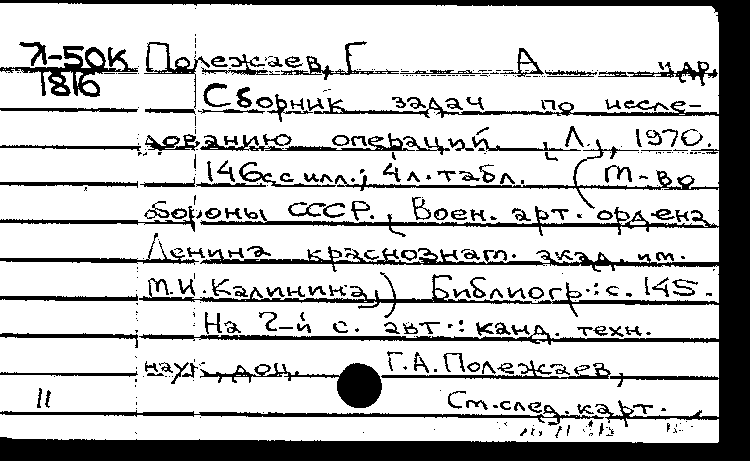 Л-50К Полежаев, Г А и др.
1816
Сборник задач по иссле-
дованию операций. [Л.], 1970.
146 с с илл.; 4 л. табл. (М-во
обороны СССР. Воен. арт. ордена
Ленина краснознам. акад. им.
М.И. Калинина) Библиогр.: с. 145.
На 2-й с. авт.: канд. техн.
наук, доц. Г.А. Полежаев,
11 См. след. карт.